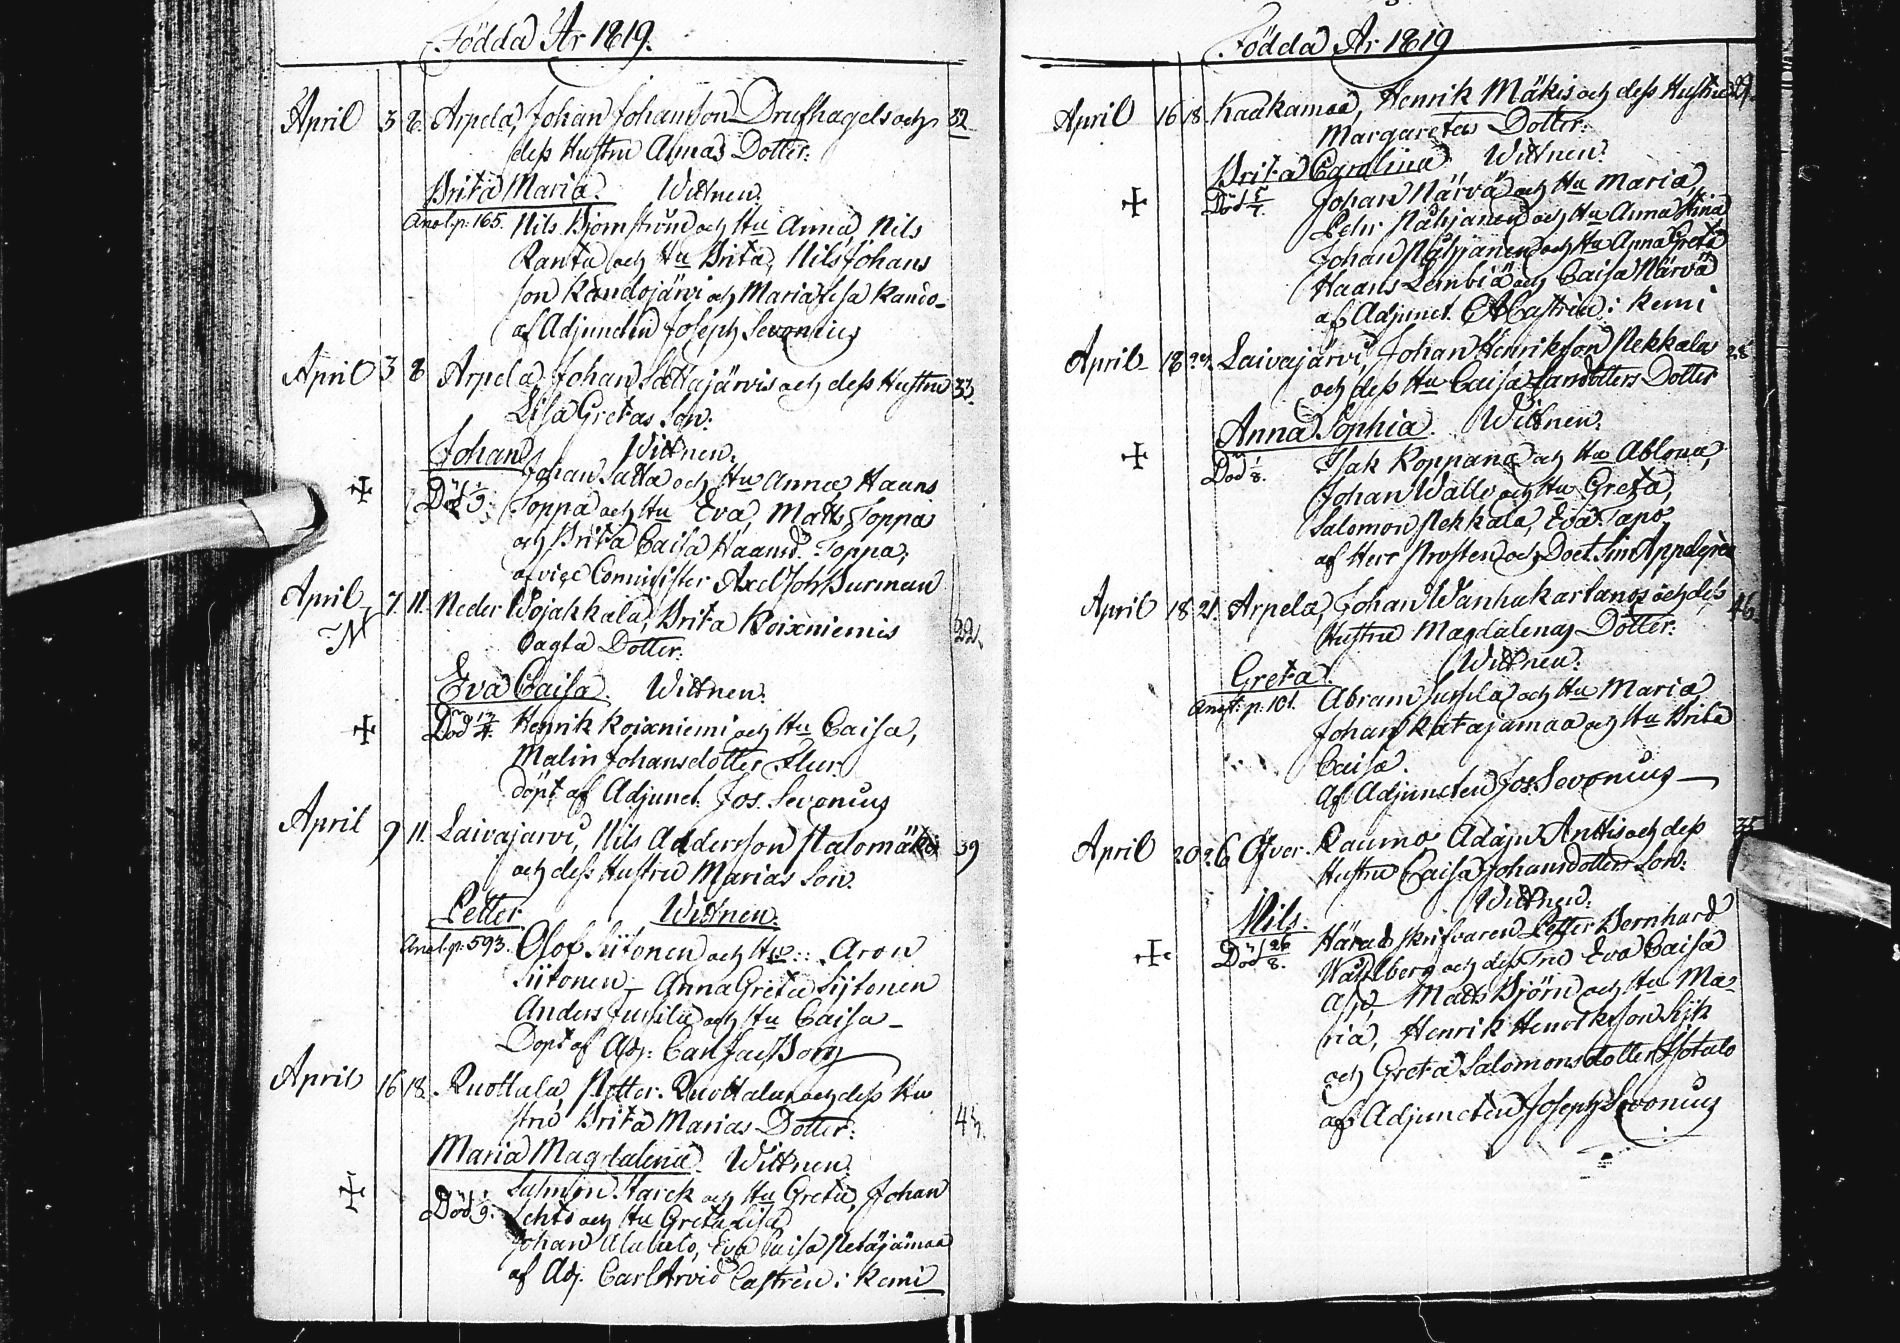 Födda År 1819.
April 3 8. Arpela, Johan Johansson Drufhagels och 32
dess Hustru Annas Dotter.
Brita Maria. Wittnen.
Anot. p. 165. Nils Björnströnd och Hu Anna, Nils
Ranta och Hu Brita, Nils Johans
son Kandojärvi och Maria Lisa Kando-
af Adjuncten Joseph Sevonius
April 3 8 Arpela Johan Sattajärvis och dess Hustru 33.
Lisa Gretas Son.
Johan Wittnen.
Johan Satta och Hu Anna Haans
Död Toppa och Hu Eva, Matts Toppa
och Brita Caisa Haansd. Toppa,
af vice Comminister Axel Joh Burman
April 7 11. Neder Wojakkala, Brita Koixniemis 22.
N oagta Dotter.
Eva Caisa. Wittnen.
Död 17/4. Henrik Koixniemi och Hu Caisa,
Malin Johansdotter
döpt af Adjunct. Jos. Sevonius
April 9 11. Laivajärvi, Nils Andersson Palomäki 39
och dess Hustru Marias Son.
Petter Wittnen.
Anot. p. 593. Olof Siitonen och Hu... Aron
Siitonen - Anna Greta Siitonen
Anders Jussila och Hu Caisa -
Döpt af Adj. Carl Jac Borg
April 16 18. Ruottala, Petter Ruottala och dess Hu
stru Brita Marias Dotter. 45.
Maria Magdalena. Wittnen.
Salmon Starck och Hu Greta, Johan
Död Lehto och Hu Greta Lisa,
Johan Alatalo, Eva Caisa Petäjämaa
af Adj. Carl Arvid Castrén i Kemi
Födda År 1819
April 16 18. Kaakamaa, Henrik Mäkis och dess Hustru 29.
Margaretas Dotter.
Brita Carolina Wittnen.
Död 5/7. Johan Närvä och Hu Maria,
Pehr Nähjanen och Hu Anna Stina
Johan Nähjanen och Hu Anna Greta
Haans Lembiä och Caisa Närvä
af Adjunct. CA Castrén i Kemi
April 18 23. Laivajärvi, Johan Henriksson Pekkalas 28
och dess Hu Caisa Larsdotters Dotter
Anna Sophia. Wittnen.
Död 1/8. Isak Koppana och Hu Ablona,
Johan Walle och Hu Greta,
Salomon Pekkala, Eva Tapo,
af Herr Prosten och Doct. Sim Appelgren
April 18 21. Arpela, Johan Wanhakartanos och dess 46.
Hustru Magdalenas Dotter.
Wittnen.
Greta.
Anot. p. 101. Abram Jussila och Hu Maria,
Johan Katajamaa och Hu Brita
Caisa.
af Adjuncten Jos. Sevonius
April 20 26 Öfver Raumo Adam Anttis och dess 35
Hustru Caisa Johansdotters Son.
Wittnen.
Nils.
Död 26/8. Häradsskrifvaren Petter Bernhard
Wahlberg och dess Fru Eva Caisa
Asp, Matts Björn och Hu Ma-
ria, Henrik Henriksson Sijk
och Greta Salomonsdotter
af Adjuncten Joseph Sevonius